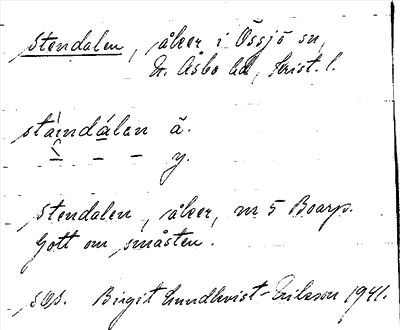 Stendalen, åker i Össjö sn,
N. Åsbo hd, Krist. l.
staindalen ä.
y.
Stendalen, åker, m 5 Boarp.
Gott om småsten.
Birgit Lundkvist-Erikson 1941.